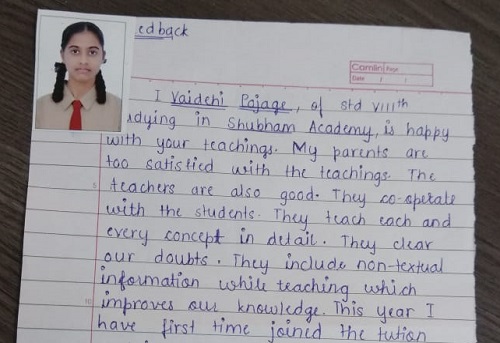 edback
Camlin Page
Date / /
I Vaidehi Pajage, of std VIIIth
udying in Shubham Academy, is happy
with your teachings. My parents are
too satisfied with the teachings. The
teachers are also good. They co-operate
with the students. They teach each and
every concept in detail. They clear
our doubts. They include non-textual
information while teaching which
improves our knowledge. This year I
have first time joined the tution